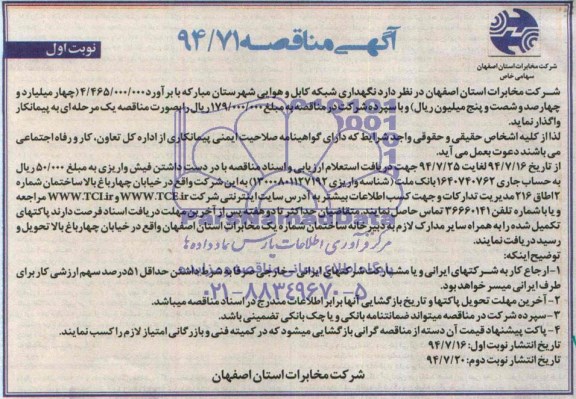 آگهی مناقصه ۹۴/۷۱
نوبت اول
شرکت مخابرات استان اصفهان
سهامی خاص
شرکت مخابرات استان اصفهان در نظر دارد نگهداری شبکه کابل و هوایی شهرستان مبارکه با برآورد ۴/۴۶۵/۰۰۰/۰۰۰ (چهار میلیارد و
چهارصد و شصت و پنج میلیون ریال) و با سپرده شرکت در مناقصه به مبلغ ۱۷۹/۰۰۰/۰۰۰ ریال را بصورت مناقصه یک مرحله ای به پیمانکار
واگذار نماید.
لذا از کلیه اشخاص حقیقی و حقوقی واجد شرایط که دارای گواهینامه صلاحیت ایمنی پیمانکاری از اداره کل تعاون، کار و رفاه اجتماعی
می باشند دعوت بعمل می آید.
از تاریخ ۹۴/۷/۱۶ لغایت ۹۴/۷/۲۵ جهت دریافت استعلام ارزیابی و اسناد مناقصه با در دست داشتن فیش واریزی به مبلغ ۵۰/۰۰۰ ریال
به حساب جاری ۱۶۴۰۷۴۰۷۶۲ بانک ملت (شناسه واریزی ۱۳۰۰۰۸۰۱۱۲۷۱۹۲) به این شرکت واقع در خیابان چهارباغ بالا ساختمان شماره
۲ اطاق ۲۱۶ مدیریت تدارکات و جهت کسب اطلاعات بیشتر به آدرس سایت اینترنتی شرکت WWW.TCE.ir و WWW.TCI.ir مراجعه
و یا با شماره تلفن ۳۶۶۶۰۱۴۱ تماس حاصل نمایند. متقاضیان حداکثر تا دو هفته پس از آخرین مهلت دریافت اسناد فرصت دارند پاکتهای
تکمیل شده را به همراه سایر مدارک لازم به دبیرخانه ساختمان شماره یک مخابرات استان اصفهان واقع در خیابان چهارباغ بالا تحویل و
رسید دریافت نمایند.
توضیح اینکه:
۱- ارجاع کار به شرکتهای ایرانی و یا مشارکت شرکتهای ایرانی - خارجی صرفا به شرط داشتن حداقل ۵۱ درصد سهم ارزشی کار برای
طرف ایرانی میسر خواهد بود.
۲- آخرین مهلت تحویل پاکتها و تاریخ بازگشایی آنها برابر اطلاعات مندرج در اسناد مناقصه میباشد.
۳- سپرده شرکت در مناقصه میتواند ضمانتنامه بانکی و یا چک بانکی تضمینی باشد.
۴- پاکت پیشنهاد قیمت آن دسته از مناقصه گرانی بازگشایی میشود که در کمیته فنی و بازرگانی امتیاز لازم را کسب نمایند.
تاریخ انتشار نوبت اول: ۹۴/۷/۱۶
تاریخ انتشار نوبت دوم: ۹۴/۷/۲۰
شرکت مخابرات استان اصفهان
مرکز فرآوری اطلاعات پارس نماد داده ها
۰۲۱-۸۸۳۴۹۶۷۰-۵